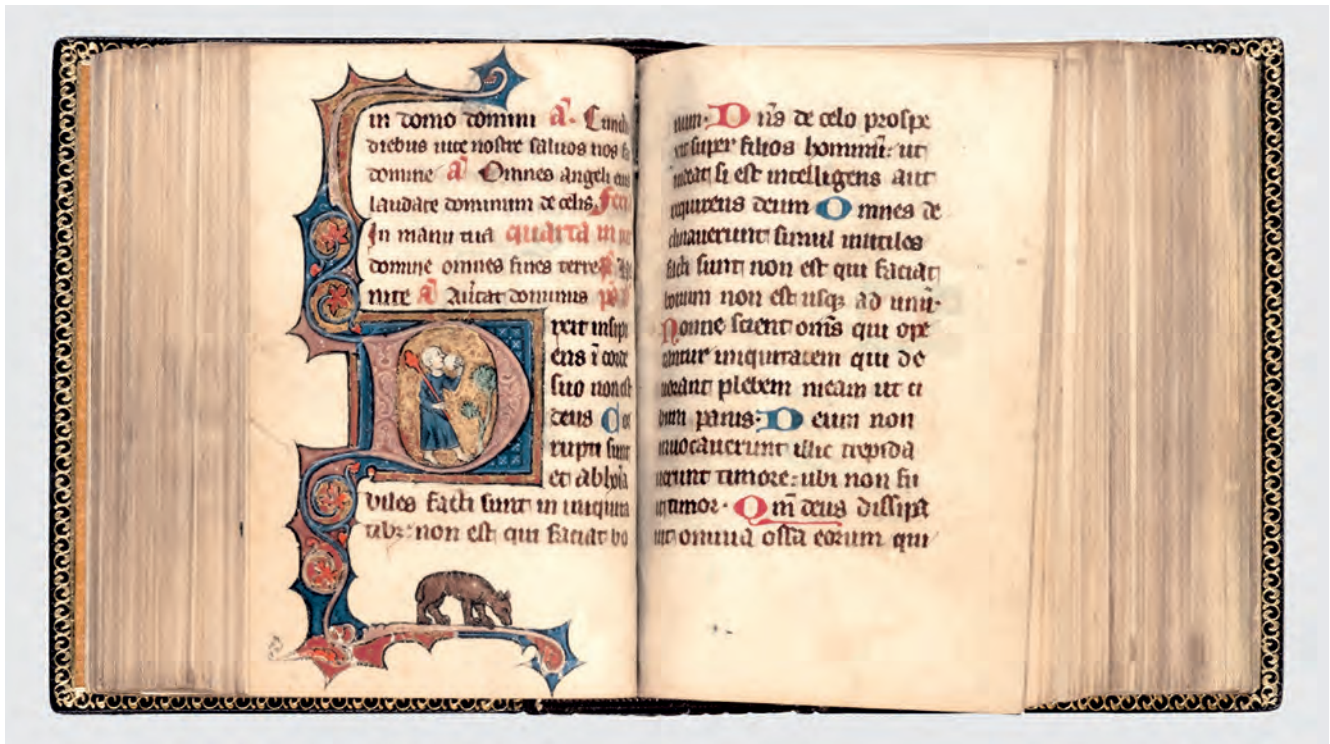 in domo domini a̅.
diebus uite nostre saluos nos
domine a̅ Omnes angeli eius
laudate dominum de celis.
In manu tua quarta in
domine omnes fines terre
nite a̅ dominus
D
ixit insipi
ens i̅ corde
suo non est
deus Cor
rupti sunt
et abhoi̅a
biles facti sunt in iniquita
tibꝫ: non est qui faciat bo
num. Dn̅s de celo prospe
xit super filios hominu̅: ut
uideat si est intelligens aut
requirens deum Omnes de
clinauerunt simul inutiles
facti sunt non est qui faciat
bonum non est usqꝫ ad unu̅.
Nonne scient om̅s qui ope
rantur iniquitatem qui de
uorant plebem meam ut ci
bum panis. Deum non
inuocauerunt illic trepida
uerunt timore: ubi non fu
it timor. Qm̅ deus dissipa
uit omnia ossa eorum qui